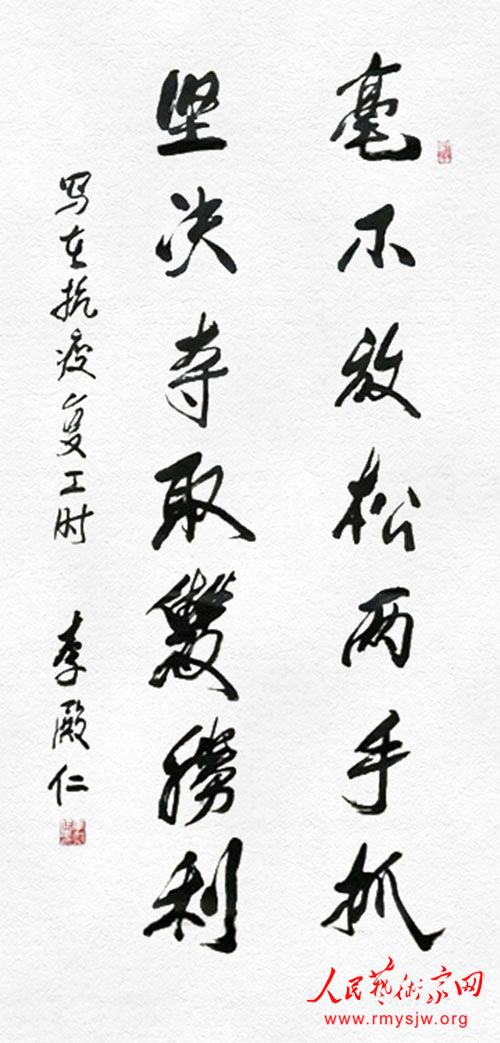 毫不放松两手抓
坚决夺取雙勝利
写在抗疫复工时 李殿仁
人民藝術家网
www.rmysjw.org